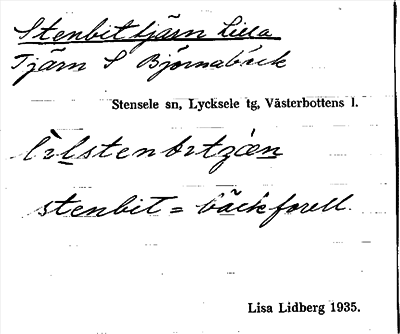 Stenbittjärn Lilla
Tjärn S Björnabäck
Stensele sn, Lycksele tg, Västerbottens l.
stenbit = bäckforell.
Lisa Lidberg 1935.